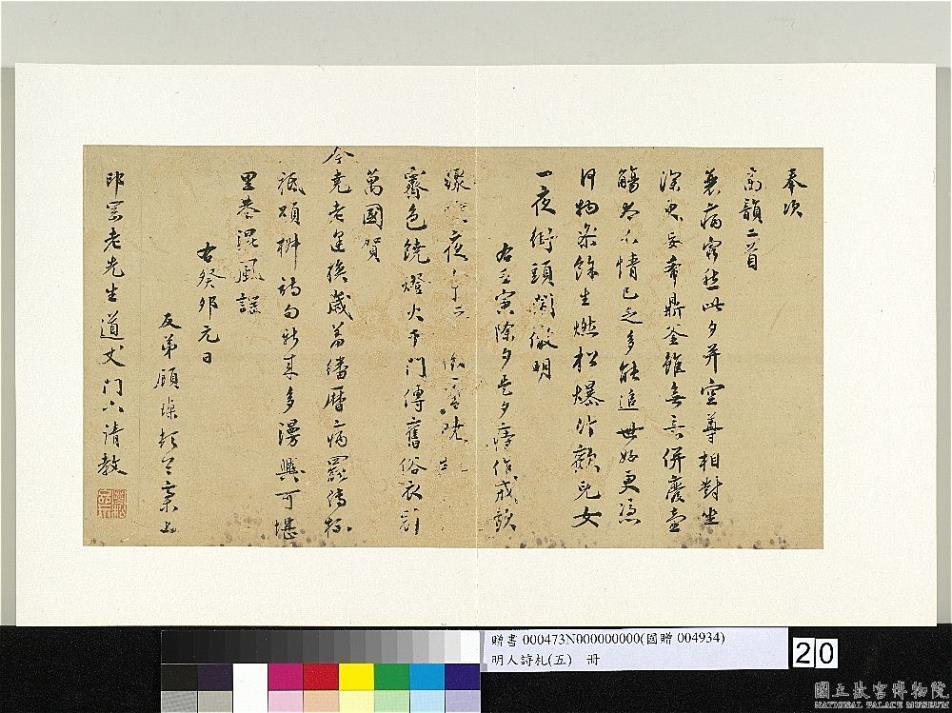 奉次
高韻二首
衰病窮愁此夕并空尊相對坐
深更妄希鼎釜雖無意併廢壺
觴大不情已乏多能追世好更憑
何物樂餘生燃松爆竹歡兒女
一夜街頭鬧徹明
右壬寅除夕是夕病作戒飲
夜
霽色饒燈火千門傳舊俗衣冠
萬國賀
今堯老逢換歲羞繙曆病罷傳杯
祇頌椒詩句新來多漫興可堪
里巷混風謠
右癸卯元日
友弟顧 頓首稾上
老先生道丈門下請教
贈書 000473N000000000(國贈 004934)
明人詩札(五) 冊
20
國立故宮博物院
NATIONAL PALACE MUSEUM